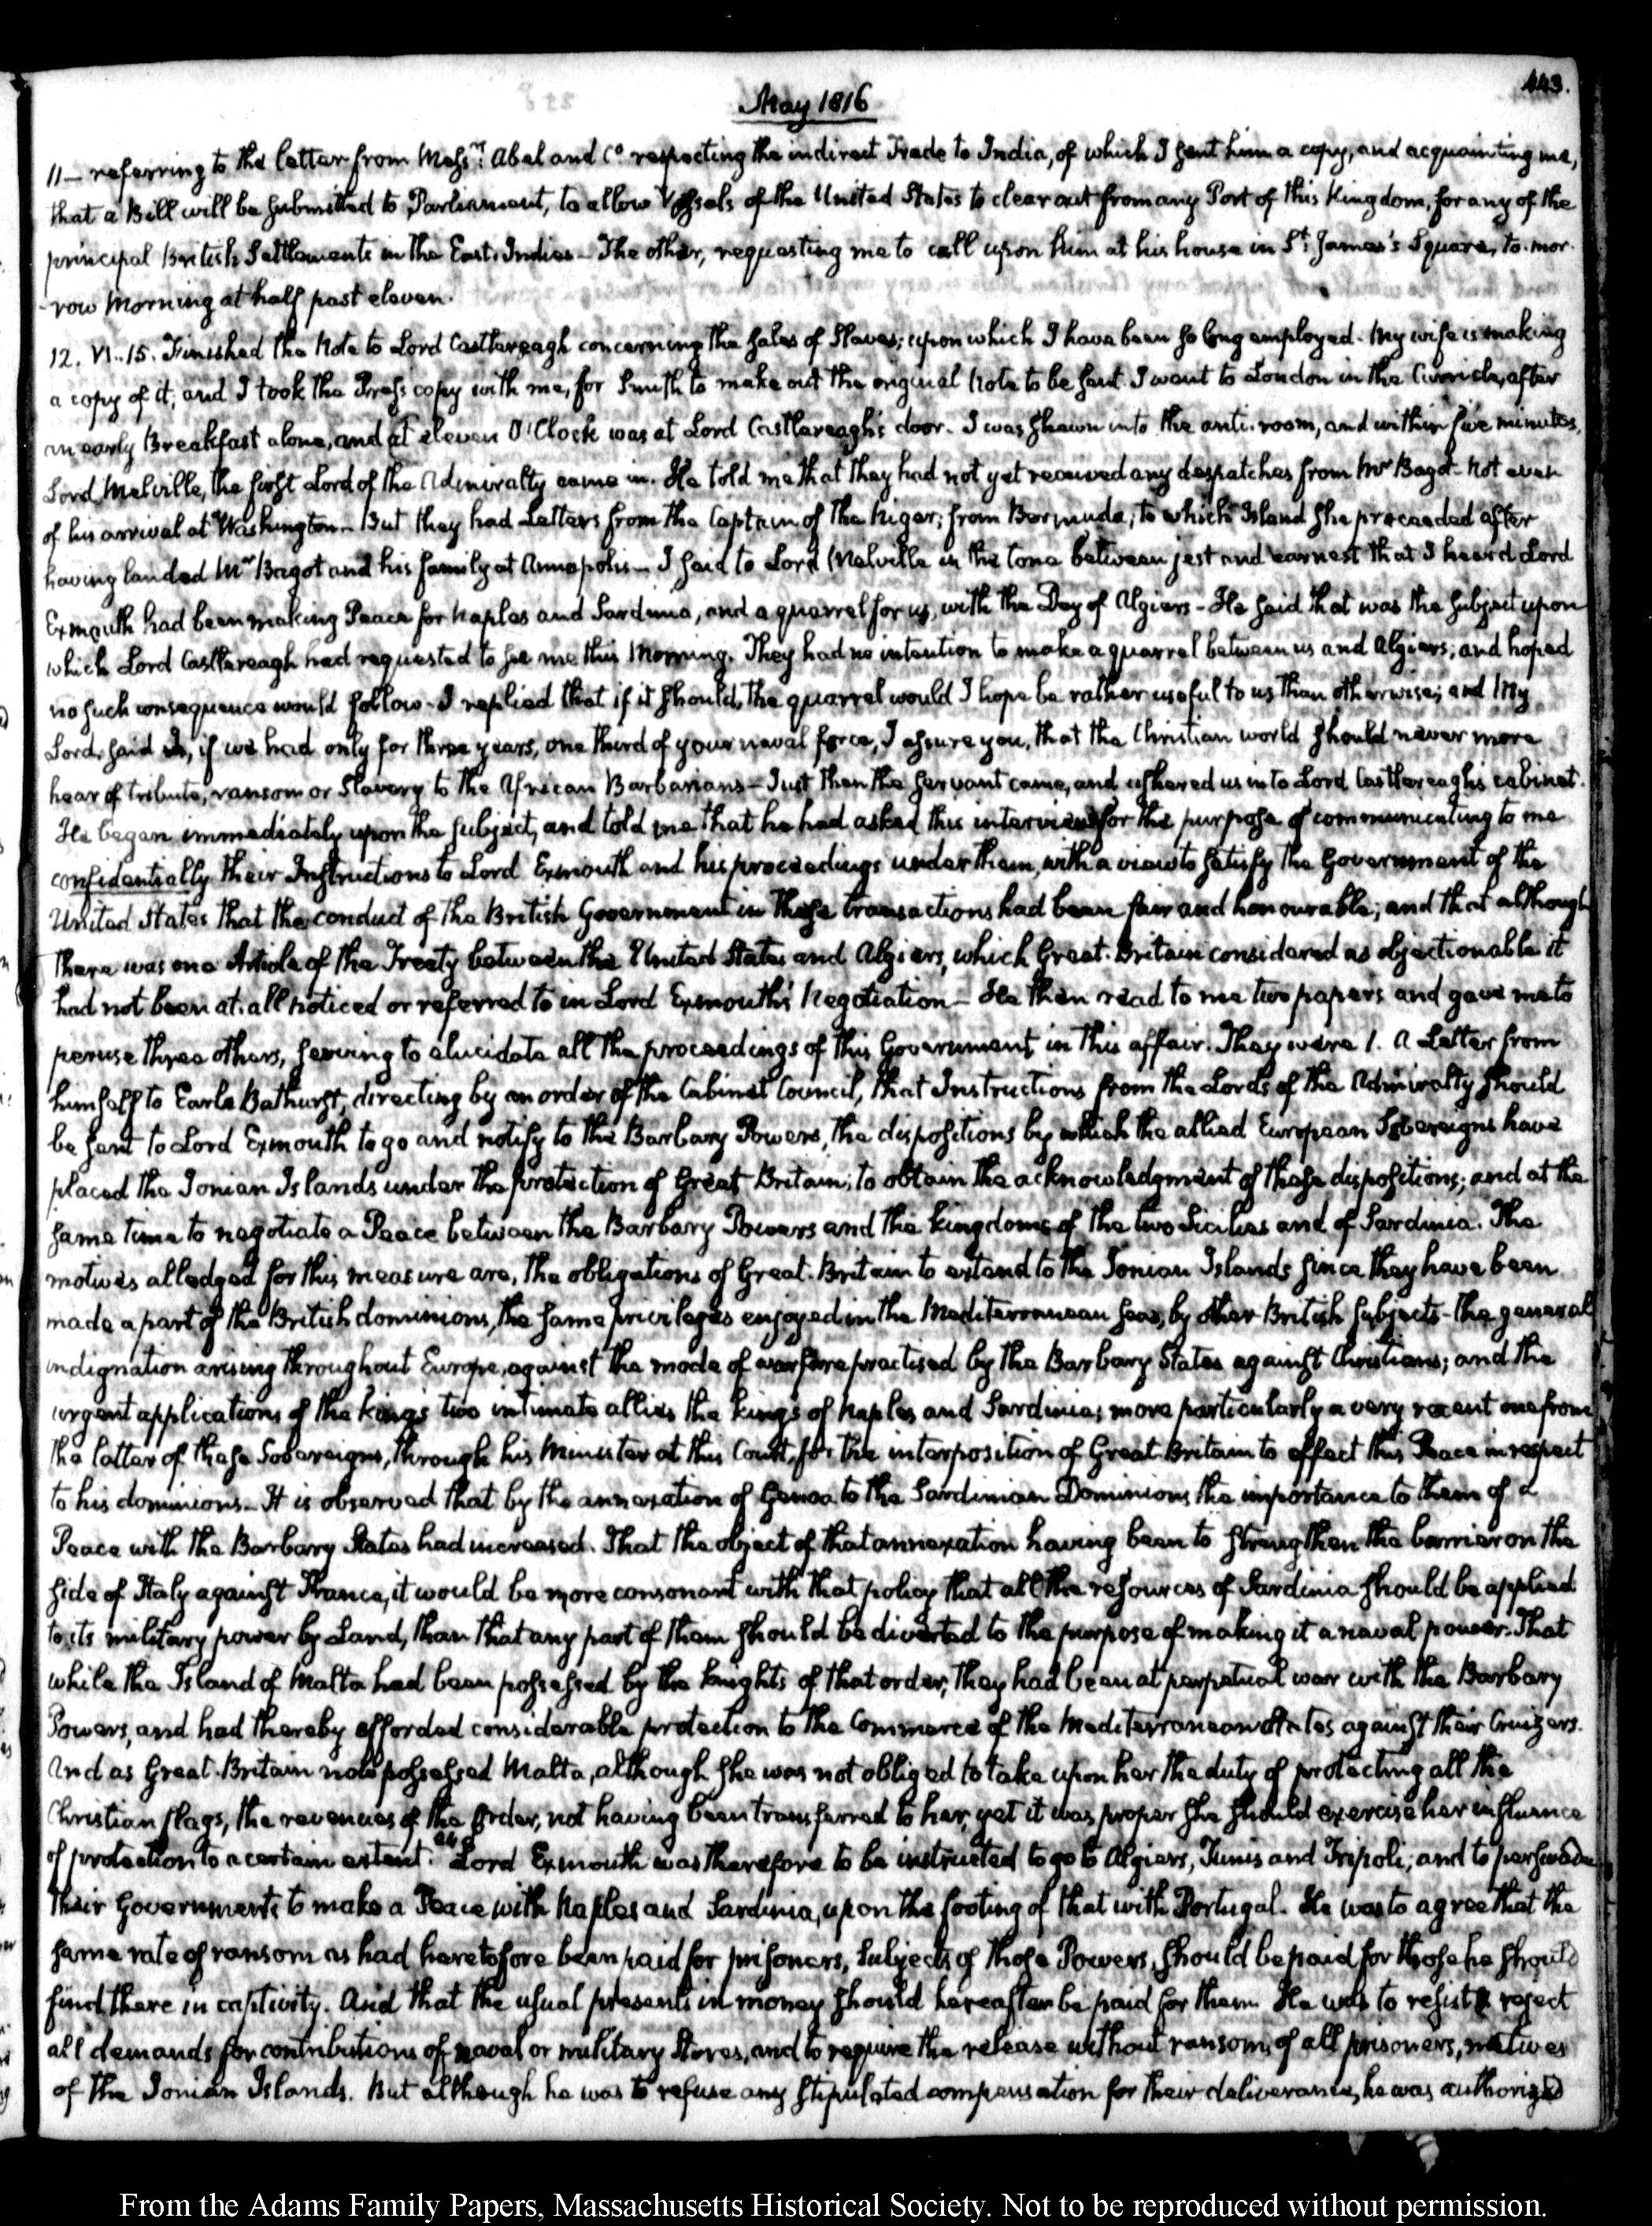 443.
May 1816
11— referring to the letter from Messrs. Abel and Co. respecting the indirect Trade to India, of which I sent him a copy, and acquainting me,
that a Bill will be submitted to Parliament, to allow Vessels of the United States to clear out from any Port of this Kingdom, for any of the
principal British Settlements in the East-Indies— The other, requesting me to call upon him at his house in St. James's Square, to-mor-
-row Morning at half past eleven.
12. VI..15. Finished the Note to Lord Castlereagh concerning the sales of Slaves; upon which I have been so long employed. My wife is making
a copy of it, and I took the Press copy with me, for Smith to make out the original Note to be sent. I went to London in the Curricle, after
an early Breakfast alone, and at eleven O'Clock was at Lord Castlereagh's door. I was shewn into the anti-room, and within five minutes,
Lord Melville, the first Lord of the Admiralty came in. He told me that they had not yet received any despatches from Mr Bagot. Not even
of his arrival at Washington— But they had Letters from the Captain of the Niger; from Bermuda; to which Island she proceeded after
having landed Mr Bagot and his family at Annapolis— I said to Lord Melville in the tone between jest and earnest that I heard Lord
Exmouth had been making Peace for Naples and Sardinia, and a quarrel for us, with the Dey of Algiers— He said that was the subject upon
which Lord Castlereagh had requested to see me this Morning. They had no intention to make a quarrel between us and Algiers; and hoped
no such consequence would follow. I replied that if it should, the quarrel would I hope be rather useful to us than otherwise; and My
Lord, said I, if we had only for three years, one third of your naval force, I assure you, that the Christian world should never more
hear of tribute, ransom or Slavery to the African Barbarians— Just then the Servant came, and ushered us into Lord Castlereagh's cabinet.
He began immediately upon the subject, and told me that he had asked this interview for the purpose of communicating to me
confidentially their Instructions to Lord Exmouth and his proceedings under them, with a view to satisfy the Government of the
United States that the conduct of the British Government in these transactions had been fair and honourable; and that although
there was one Article of the Treaty between the United States and Algiers, which Great-Britain considered as objectionable it
had not been at all noticed or referred to in Lord Exmouth's Negotiation— He then read to me two papers and gave me to
peruse three others, serving to elucidate all the proceedings of this Government in this affair. They were 1. A Letter from
himself to Earle Bathurst, directing by an order of the Cabinet Council, that Instructions from the Lords of the Admiralty should
be sent to Lord Exmouth to go and notify to the Barbary Powers, the dispositions by which the allied European Sovereigns have
placed the Ionian Islands under the protection of Great-Britain; to obtain the acknowledgment of these dispositions; and at the
same time to negotiate a Peace between the Barbary Powers and the kingdoms of the two Sicilies and of Sardinia. The
motives alledged for this measure are, the obligations of Great-Britain to extend to the Ionian Islands since they have been
made a part of the British dominions, the same privileges enjoyed in the Mediterranean seas, by other British subjects— the general
indignation arising throughout Europe, against the mode of warfare practised by the Barbary States against Christians; and the
urgent applications of the king's two intimate allies the kings of Naples and Sardinia; more particularly a very recent one from
the latter of these Sovereigns, through his Minister at this Court, for the interposition of Great-Britain to effect this Peace in respect
to his dominions— It is observed that by the annexation of Genoa to the Sardinian Dominions the importance to them of a
Peace with the Barbary States had increased. That the object of that annexation having been to strengthen the barrier on the
side of Italy against France, it would be more consonant with that policy that all the resources of Sardinia should be applied
to its military power by Land, than that any part of them should be diverted to the purpose of making it a naval power. That
while the Island of Malta had been possessed by the knights of that order, they had been at perpetual war with the Barbary
Powers, and had thereby afforded considerable protection to the Commerce of the Mediterranean States against their Cruizers.
And as Great-Britain now possessed Malta, although she was not obliged to take upon her the duty of protecting all the
Christian flags, the revenues of the Order, not having been transferred to her, yet it was proper she should exercise her influence
of protection to a certain extent. Lord Exmouth was therefore to be instructed to go to Algiers, Tunis and Tripoli; and to perswade
their Governments to make a Peace with Naples and Sardinia, upon the footing of that with Portugal. He was to agree that the
same rate of ransom as had heretofore been paid for prisoners, subjects of those Powers, should be paid for those he should
find there in captivity. And that the usual presents in money should hereafter be paid for them. He was to resist & reject
all demands for contributions of naval or military Stores, and to require the release without ransom, of all prisoners, natives
of the Ionian Islands. But although he was to refuse any stipulated compensation for their deliverance, he was authorized
From the Adams Family Papers, Massachusetts Historical Society. Not to be reproduced without permission.